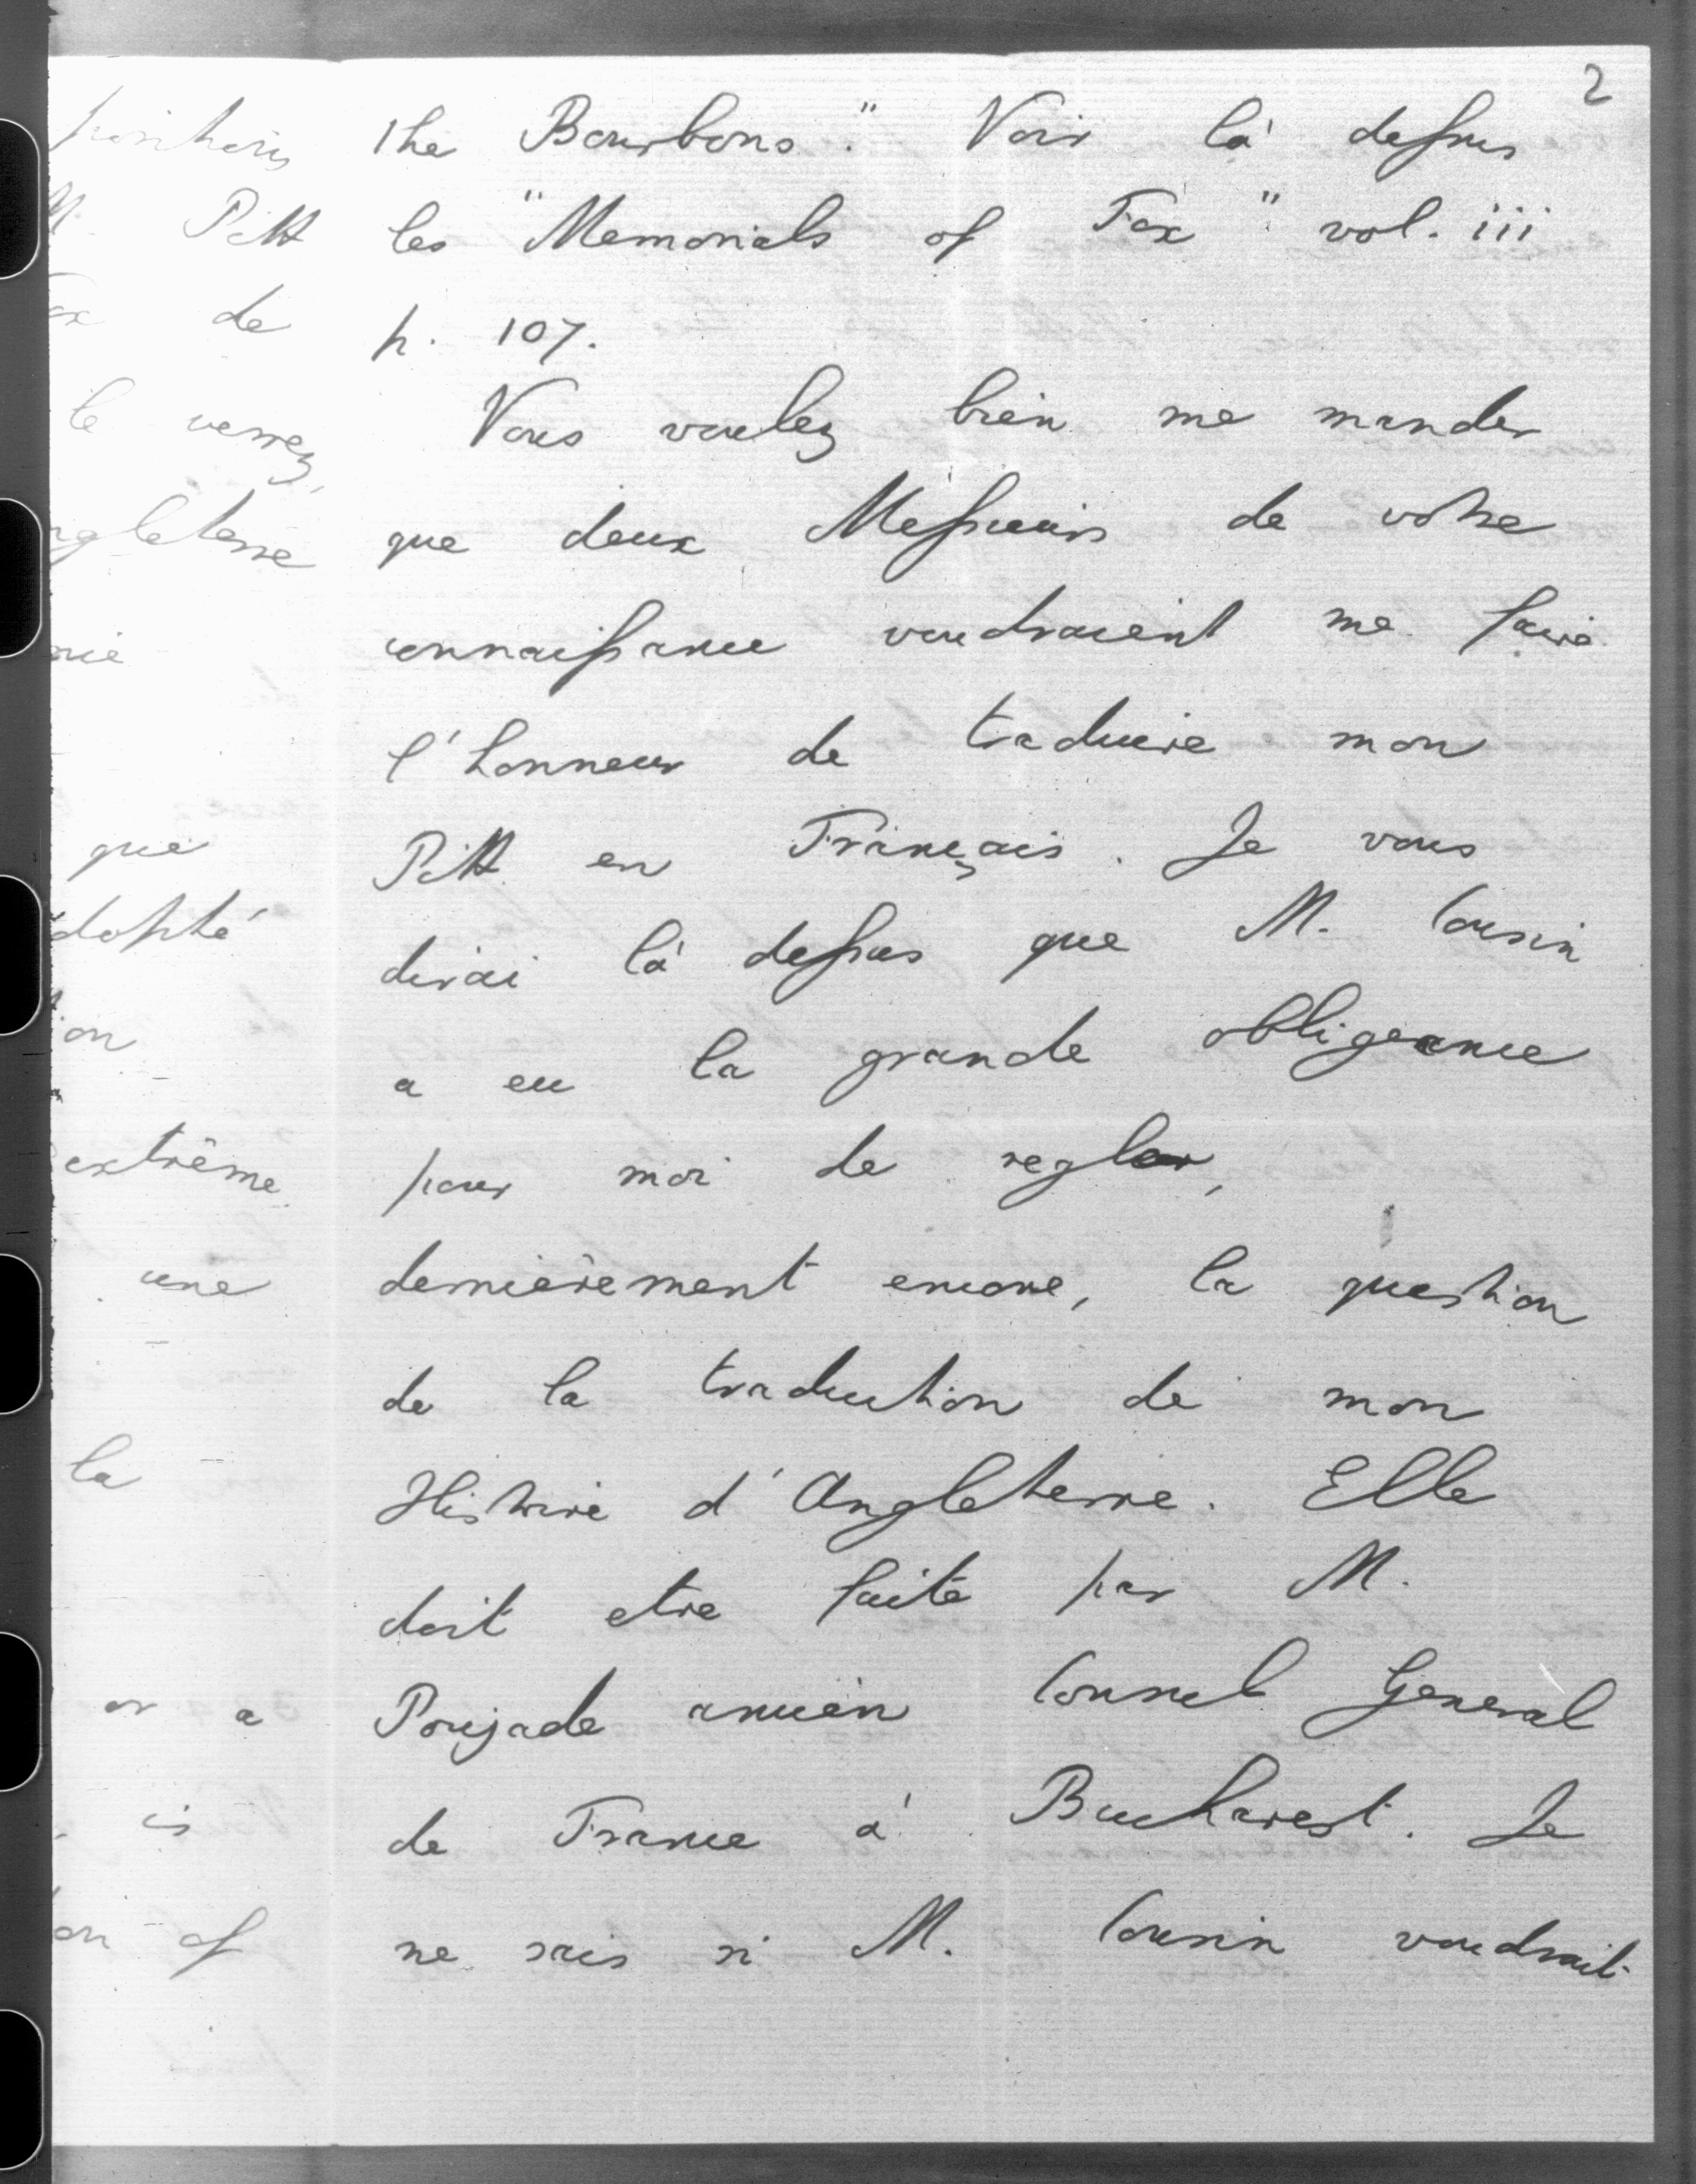 2
the Bourbons." Voir là dessus
les "Memorials of Fox" vol. iii
p. 107.
Vous voulez bien me mander
que deux Messieurs de votre
connaissance voudraient me faire
l'honneur de traduire mon
Pitt en Français. Je vous
dirai là dessus que M. Cousin
a eu la grande obligeance
pour moi de regler,
dernièrement encore, la question
de la traduction de mon
Histoire d'Angleterre. Elle
doit etre faite par M.
Poujade ancien Consul General
de France à Bucharest. Je
ne sais si M. Cousin voudrait
M. Pitt
de
le verrez,
ngleterre
que
dopté
on
extrême
une
la
or a
is
on of